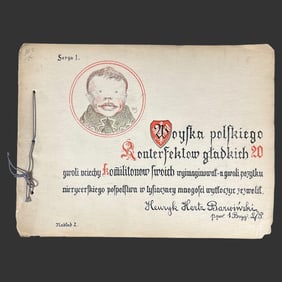 Serya 1.
Woyska polskiego
Konterfektow gładkich 20
gwoli uciechy Komilitonow swoich wyimaginował a gwoli pożytku
nierycerskiego pospolstwa w tysiącney mnogości wytłoczyć zezwolił.
Henryk Hertz Barwiński
Nakład 2.